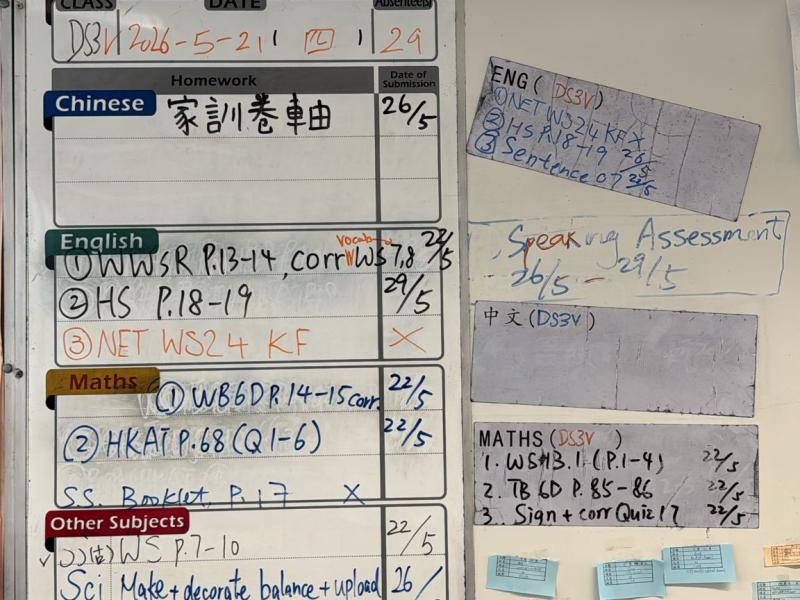 CLASS DATE Absentee(s)
DS3V 2026-5-21 ( 四 ) 29
Homework Date of Submission
Chinese 家訓卷軸 26/5
English
vocab
① WWSR P.13-14, corr WS 7,8 22/5
② HS P.18-19 29/5
③ NET WS24 KF X
Maths
① WB6D P.14-15 corr. 22/5
② HKAT P.68 (Q1-6) 22/5
S.S. Booklet P.17 X
Other Subjects
WS P.7-10 22/5
Sci Make + decorate balance + upload 26/
ENG ( DS3V )
① NET WS24 KF X
② HS P.18-19 26/5
③ Sentence 07 22/5
Speaking Assessment
26/5 - 29/5
中文 (DS3V )
MATHS (DS3V )
1. WS 13.1 (P.1-4) 22/5
2. TB 6D P.85-86 22/5
3. Sign + corr Quiz 17 22/5